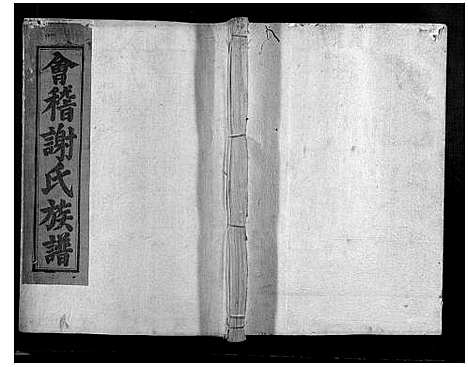 會稽謝氏族譜